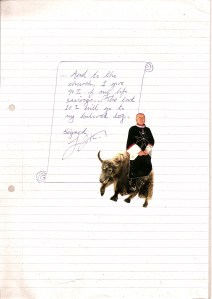 ... And to the
church, I give
90% of my life
savings... The last
10% will go to
my beloved dog.
Signed